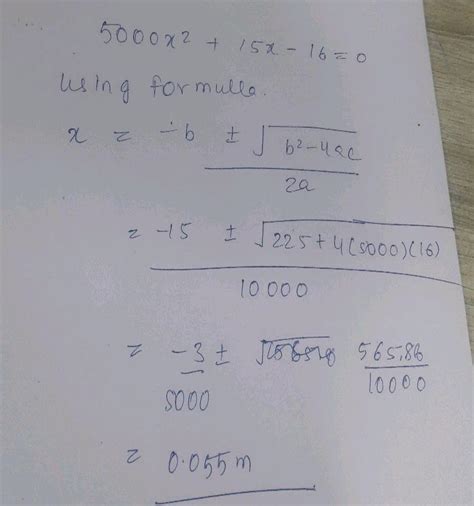 5000x² + 15x - 16 = 0
Using formulla.
x = -b ± √b²-4ac
2a
= -15 ± √225+4(5000)(16)
10000
= -3 ± 565.86
5000 10000
= 0.055m